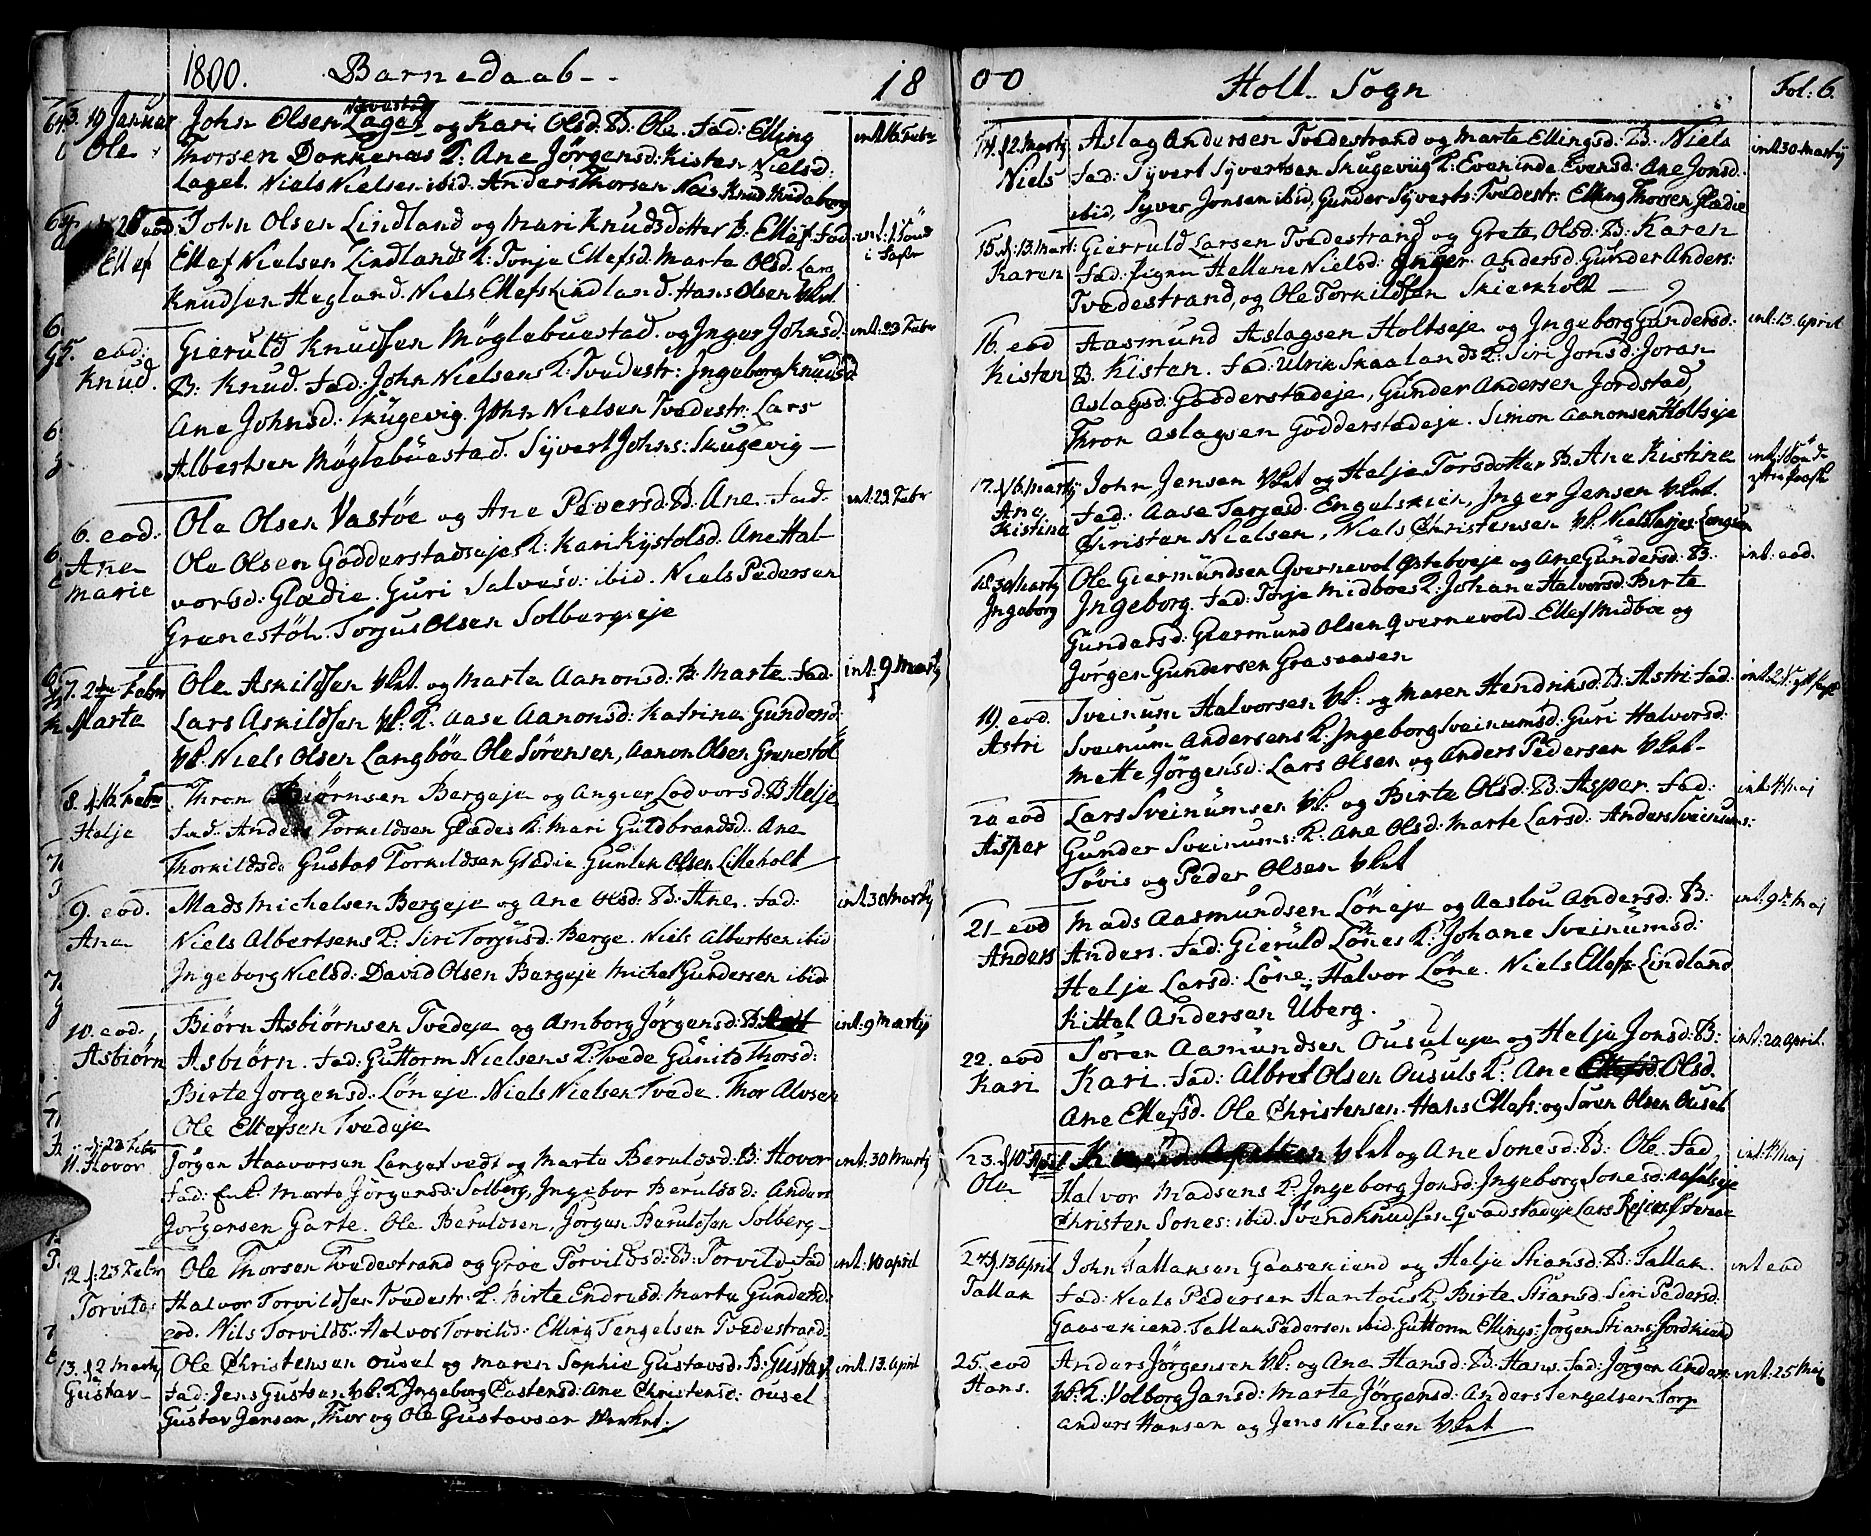 1800. Barnedaab - -
18
3. 19 Januar John Olsen Laget og Kari Olsd: B. Ole. Fad: Elling
Ole Thorsen Dokkenæs K: Ane Jörgensd: Kisten Nielsd:
Laget. Niels Nielsen ibid. Anders Thorsen Næs Knud
int. 16 Febr
26 John Olsen Lindland og Mari Knudsdotter B: Ellef. Fad:
Ellef Ellef Nielsen Lindlands K: Tonje Ellefsd: Marte Olsd. Lars
Knudsen Hegland. Niels Ellefs: Lindland. Hans Olsen Vbl.
5. eod: Gieruld Knudsen Möglebuestad og Inger Johnsd:
Knud. B: Knud. Fad: John Nielsens K: Tvedestr: Ingeborg Knudsd:
Ane Johnsd: Skugevig. John Nielsen Tvedestr: Lars
Albertsen Möglebuestad. Syvert Johns: Skugevig —
int: 23 Febr
6. eod. Ole Olsen Vastöe og Ane Peversd: B: Ane. Fad:
Ane Ole Olsen Godderstadsejes K: Kari Kystolsd: Ane Hal-
Marie vorsd: Glædie. Guri Salvesd: ibid. Niels Pedersen
Grenestöl. Torjus Olsen Solbergseje
int: 23 Febr
7. 2 Febr Ole Askildsen Vbl. og Marte Aanonsd: B: Marte. Fad:
Marte Lars Askildsen Vb: K: Aase Aanonsd: Katrine Gundersd:
Vb. Niels Olsen Langböe Ole Sörensen, Aanon Olsen Grenestöl
int: 9 Marty
8. f. 16 Febr Thron Biörnsen Bergeje og Angier Lodvorsd: B: Helje
Helje Fad: Anders Torkildsen Glædes K: Mari Guldbrandsd: Ane
Thorkildsd: Gustav Torkildsen Glædie Gunlek Olsen Lilleholt
9. eod. Mads Michelsen Bergeje og Ane Olsd: B: Ane. Fad:
Ane Niels Albertsens K: Siri Torjusd: Berge. Niels Albertsen ibid
Ingeborg Nielsd: David Olsen Bergeje Michel Gundersen ibid
int. 30 Marty
10. eod. Biörn Asbiörnsen Tvedeje og Amborg Jörgensd: B:
Asbiörn Asbiörn. Fad: Guttorm Nielsens K: Tvede Gunild Thorsd:
Birte Jörgensd: Löneje Niels Nielsen Tvede. Thor Alvsen
Ole Ellefsen Tvedeje
int: 9 Martij
11. Hovor Jörgen Haavorsen Langetvedt og Marte Beruldsd: B: Hovor
Fad: Marte Jörgensd: Solberg, Ingebor Beruldsd: Anders
Jörgensen Garte. Ole Beruldsen, Jörgen Beruldsen Solberg-
int: 30 Marty
12 f: 23 Febr Ole Thorsen Tvedestrand og Groe Torvildsd: B: Torvild. Fad
Torvild: Halvor Torvildsen Tvedestr: K: Birte Endresd: Marte Gundersd:
eod. Nils Torvilds: Halvor Torvilds: Elling Tengelsen Tvedestrand
int: 10 april
13. f. 2 Marty Ole Christensen Ousel og Maren Sophie Gustavsd: B: Gustav
Gustav- Fad: Jens Gustsen Vb: K: Ingeborg Castensd: Ane Christensd: Ousel
Gustav Jensen, Thor og Ole Gustavsen Værket./
int: 13. April
00 Holt Sogn Fol: 6.
14. f. 2. Marty Aslag Andersen Tvedestrand og Marte Ellingsd: B: Niels
Niels Fad: Syvert Syvertsen Skugeviig K: Even inde Evensd: Ane Jonsd.
ibid, Syver Jonsen ibid, Gunder Syverts: Tvedestr: Elling Thorsen Glædie
int: 30 Marty
15. f: 13. Mart: Gierruld Larsen Tvedestrand og Grete Olsd: B: Karen
Karen Fad: Pigen Hellene Nielsd: Inger Andersd: Gunder Anders:
Tvedestrand, og Ole Torkildsen Skierkholt —
16. eod Aasmund Aslagsen Holtseje og Ingeborg Gundersd:
Kisten B: Kisten. Fad: Ulrik Skaalands K: Siri Jonsd: Joran
Aslagsd: Godderstadeje, Gunder Andersen Jordstad,
Thron Aslagsen Godderstadeje. Simon Aanonsen Holtseje
int: 13. April
17. f. 16. Marty John Jensen Vbl. og Helje Torsdotter B: Ane Kistine
Ane Fad: Aase Terjesd: Engelskien, Inger Jensen Vbl.
Kistine Christen Nielsen, Niels Christensen Vb. Niels Terjes: Langsæn
18. 30 Marty Ole Giermundsen Qvernevol Østebveje og Ane Gundersd: B:
Ingeborg Ingeborg. Fad: Torje Midboes K: Johane Halvorsd: Birte
Gundersd: Giermund Olsen Qvernevold Ellef Midboe og
Jörgen Gundersen Grasaasen
int: eod.
19. eod. Sveinum Halvorsen Vb: og Maren Hendriksd: B: Astri Fad:
Astri Sveinum Andersens K: Ingeborg Sveinumsd: Guri Halvorsd:
Mette Jörgensd: Lars Olsen og Anders Pedersen Vbl.
20 eod Lars Sveinumsen Vb: og Birte Olsd: B: Asper. Fad:
Asper Gunder Sveinums: K: Ane Olsd: Marte Larsd: Anders Sveinums:
Tövis og Peder Olsen Vbl.
int: 4 Maj
21 - eod Mads Aasmundsen Löneje og Aaslou Andersd: B:
Anders Anders. Fad: Gieruld Lönes K: Johane Sveinumsd:
Helje Larsd: Löne, Halvor Löne. Niels Ellefs: Lindland
Kittel Andersen Uberg.
int: 9de Maj
22. eod Sören Aamundsen Ousuleje og Helje Jonsd: B:
Kari Kari. Fad: Albret Olsen Ousuls K: Ane Olsd.
Ane Ellefsd. Ole Christensen. Hans Ellefs: og Sören Olsen Ousel
int. 20 April.
23. f. 10 April Vbl og Ane Sonesd: B: Ole. Fad:
Ole Halvor Madsens K: Ingeborg Jonsd: Ingeborg Sonesd:
Christen Sones: ibid. Svend Knudsen
int: 4 Maj
24. f. 13 April John Tallaksen Gaaseknend og Helje Stiansd: B: Tallak.
Tallak Fad: Niels Pedersen Hantous K: Birte Stiansd: Siri Pedersd:
Gaaseknend. Tallak Pedersen ibid. Guttorm Ellings: Jörgen Stians:
int eod
25. eod Anders Jörgensen Vb: og Ane Hansd: B: Hans. Fad: Jörgen Anders:
Hans. Vb: K: Volborg Jansd: Marte Jörgensd: Anders Tengelsen Torp
Anders Hansen og Jens Nielsen Vbl
int: 25 Maj